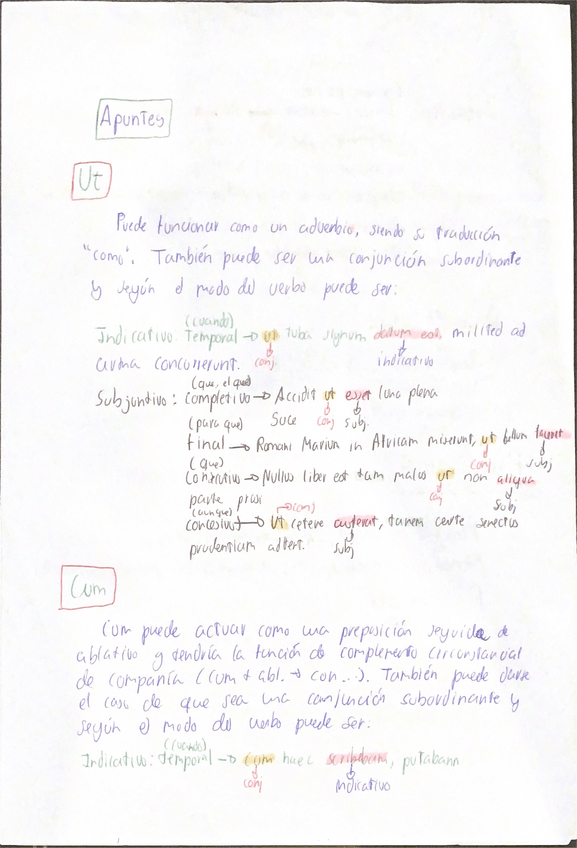 Apuntes
Ut
Puede funcionar como un adverbio, siendo su traducción
"como". También puede ser una conjunción subordinante
y según el modo del verbo puede ser:
(cuando)
Indicativo: Temporal → ut tuba signum datum est, milited ad
arma concurrerunt. conj. indicativo
(que, el que)
Subjuntivo: completivo → Accidit ut esset luna plena
(para que) Suce conj subj.
Final → Romani Marium in Africam miserunt, ut bellum faceret
(que) conj subj
Consecutivo → Nullus liber est tam malus ut non aliqua
parte prosi conj subj
(aunque) → conj
concesivo → Ut cetera auferat, tamen certe senectus
prudentiam adfert. subj
Cum
Cum puede actuar como una preposición seguida de
ablativo y tendría la función de complemento circunstancial
de compañía (cum + abl. → con...). También puede darse
el caso de que sea una conjunción subordinante y
según el modo del verbo puede ser:
(cuando)
Indicativo: temporal → cum haec scribebam, putabam
conj indicativo